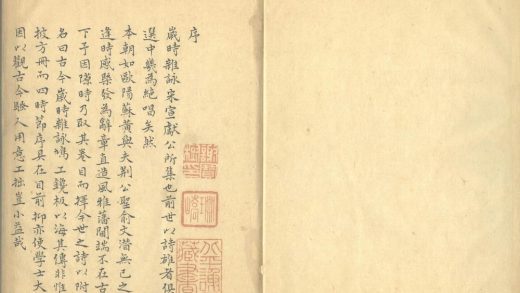 序
歲時雜詠宋宣獻公所集也前世以詩雄者俱
選中幾為絕唱矣然
本朝如歐陽蘇黃與夫荆公聖俞文潛無已之
逢時感槩發為辭章直造風雅藩閫端不在古
下予因隙時乃取其卷目而擇今世之詩以附
名曰古今歲時雜詠鳩工鏤板以海其傳非惟
披方冊而四時節序具在目前抑亦使學士大
因以觀古今騷人用意工拙豈小益哉
藏書